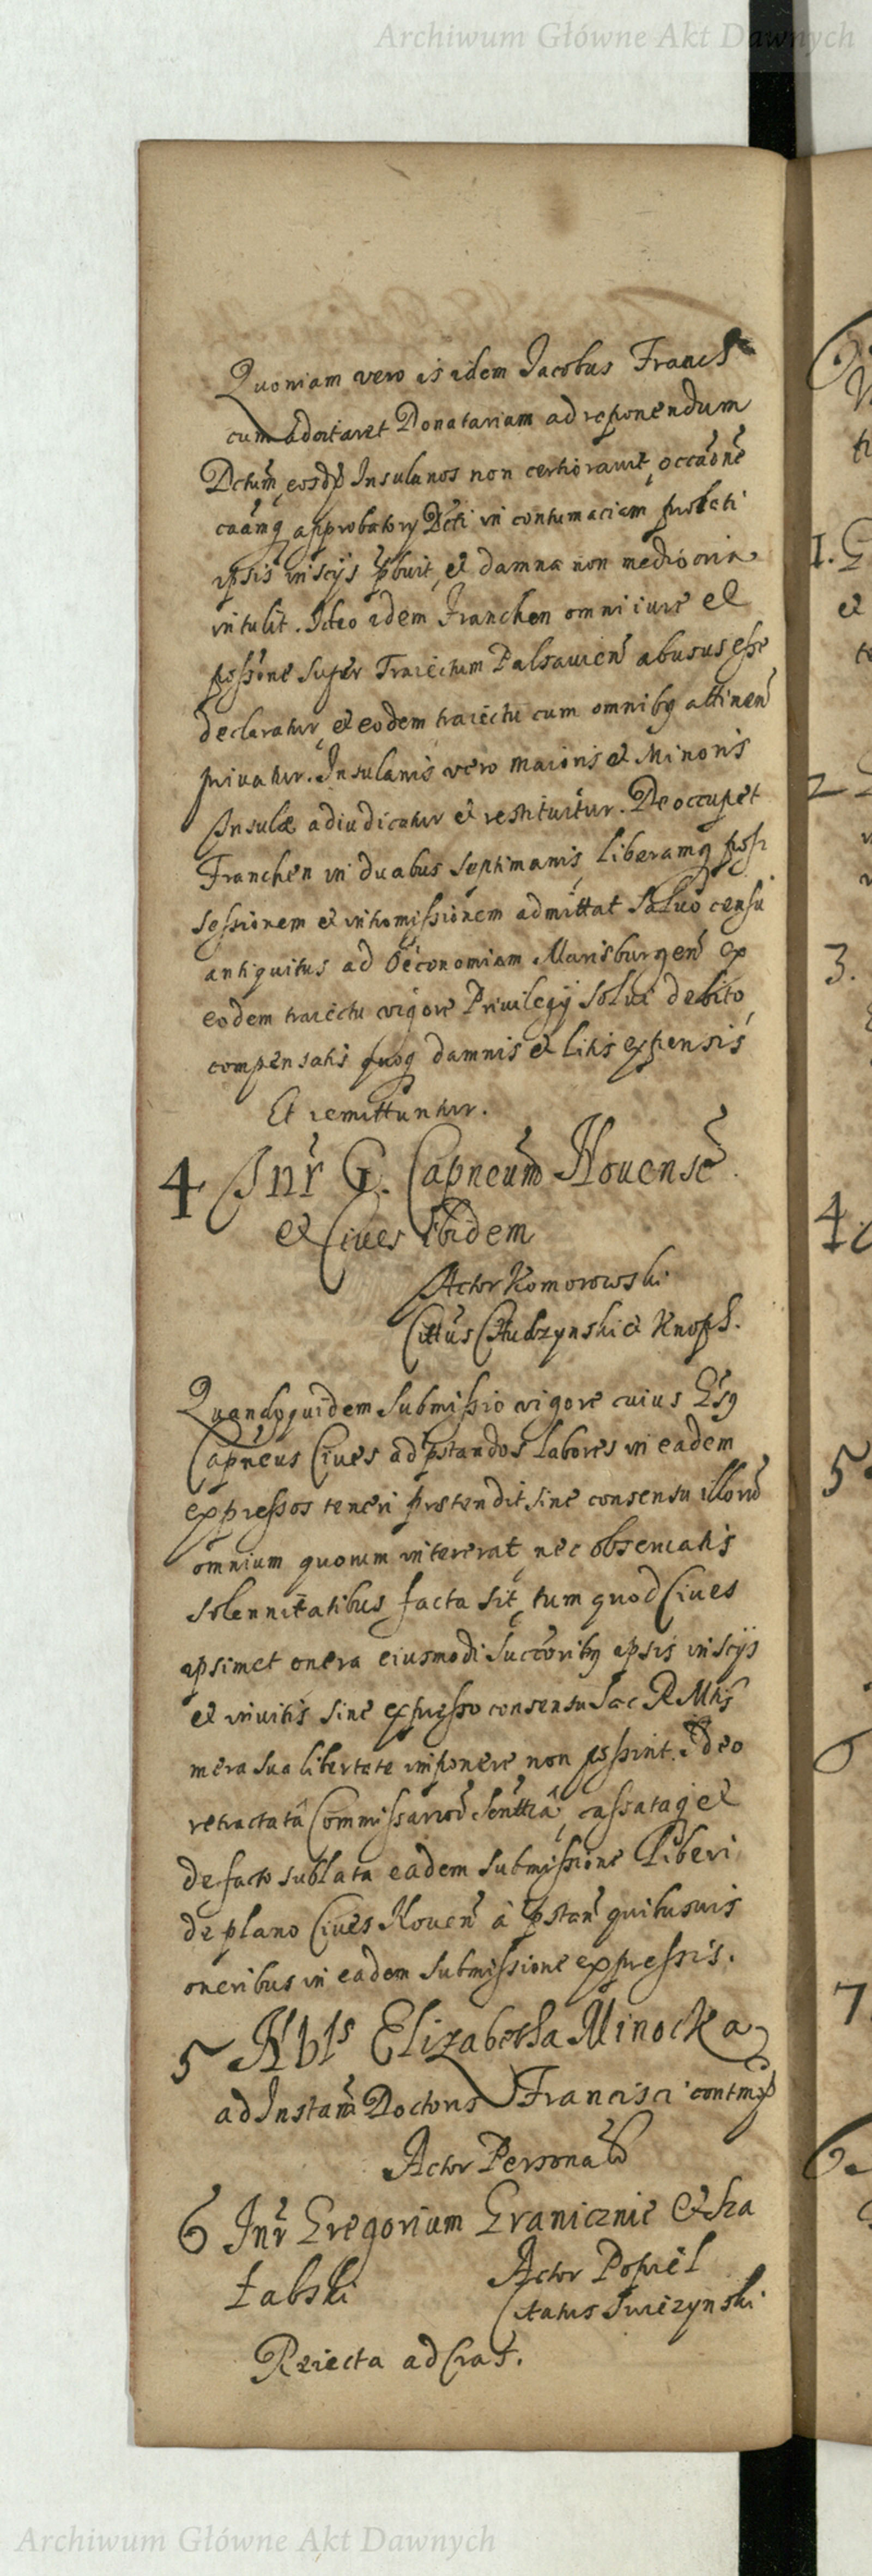 Archiwum Główne Akt Dawnych
Quoniam vero is idem Jacobus Franch
cum adcitaret Donatariam ad reponendum
Dctum, eosdē Insulanos non certioravit, occaonē
caāmq approbatory Dcti in contumaciam
ipsis inscijs pbuit, et damna non mediocria
intulit. Ideo idem Franchen omni iure et
possione super Traiectum Palsauien abusus esse
declaratur, et eodem traiectu cum omnibq attinen
privatur. Insulanis vero maioris et Minoris
Insulæ adiudicatur et restituitur. Deoccupet
Franchen in duabus septimanis, liberamq pos
sessionem et intromissionem admittat Salvo censu
antiquitus ad Oeconomiam Marisburgen ex
eodem traiectu vigore Privilegij solui debito,
compensatis quoq damnis et litis expensis
Et remittuntur.
4 Inr G. Capneum Novensē
et Cives Ibidem
Actor Komorowski
Cittus Chudzynski et Knoph.
Quandoquidem submissio vigore cuius Gsq
Capneus Cives ad pstandos labores in eadem
expressos teneri prętendit sine consensu illorū
omnium quorum intererat, nec observatis
solennitatibus facta sit, tum quod Cives
ipsimet onera eiusmodi succoribq ipsis inscijs
et invitis sine expresso consensu Sac R Mtis
mera sua libertate imponere non possint. Ideo
retractatâ Commissariorū Senttiâ, cassataq et
de facto sublata eadem submissione Liberi
de plano Cives Noven â pstan quibusvis
oneribus in eadem submissione expressis.
5 Nbls Elizabetha Minocka
ad Instam Doctoris Francisci contmp
Actor Personal
6 Inr Gregorium Granicznie et
Łabski Actor Popiel
Citatus Swiezynski
Reiecta ad Cras.
1.
2
3.
4.
5.
6
7.
6.
Archiwum Główne Akt Dawnych